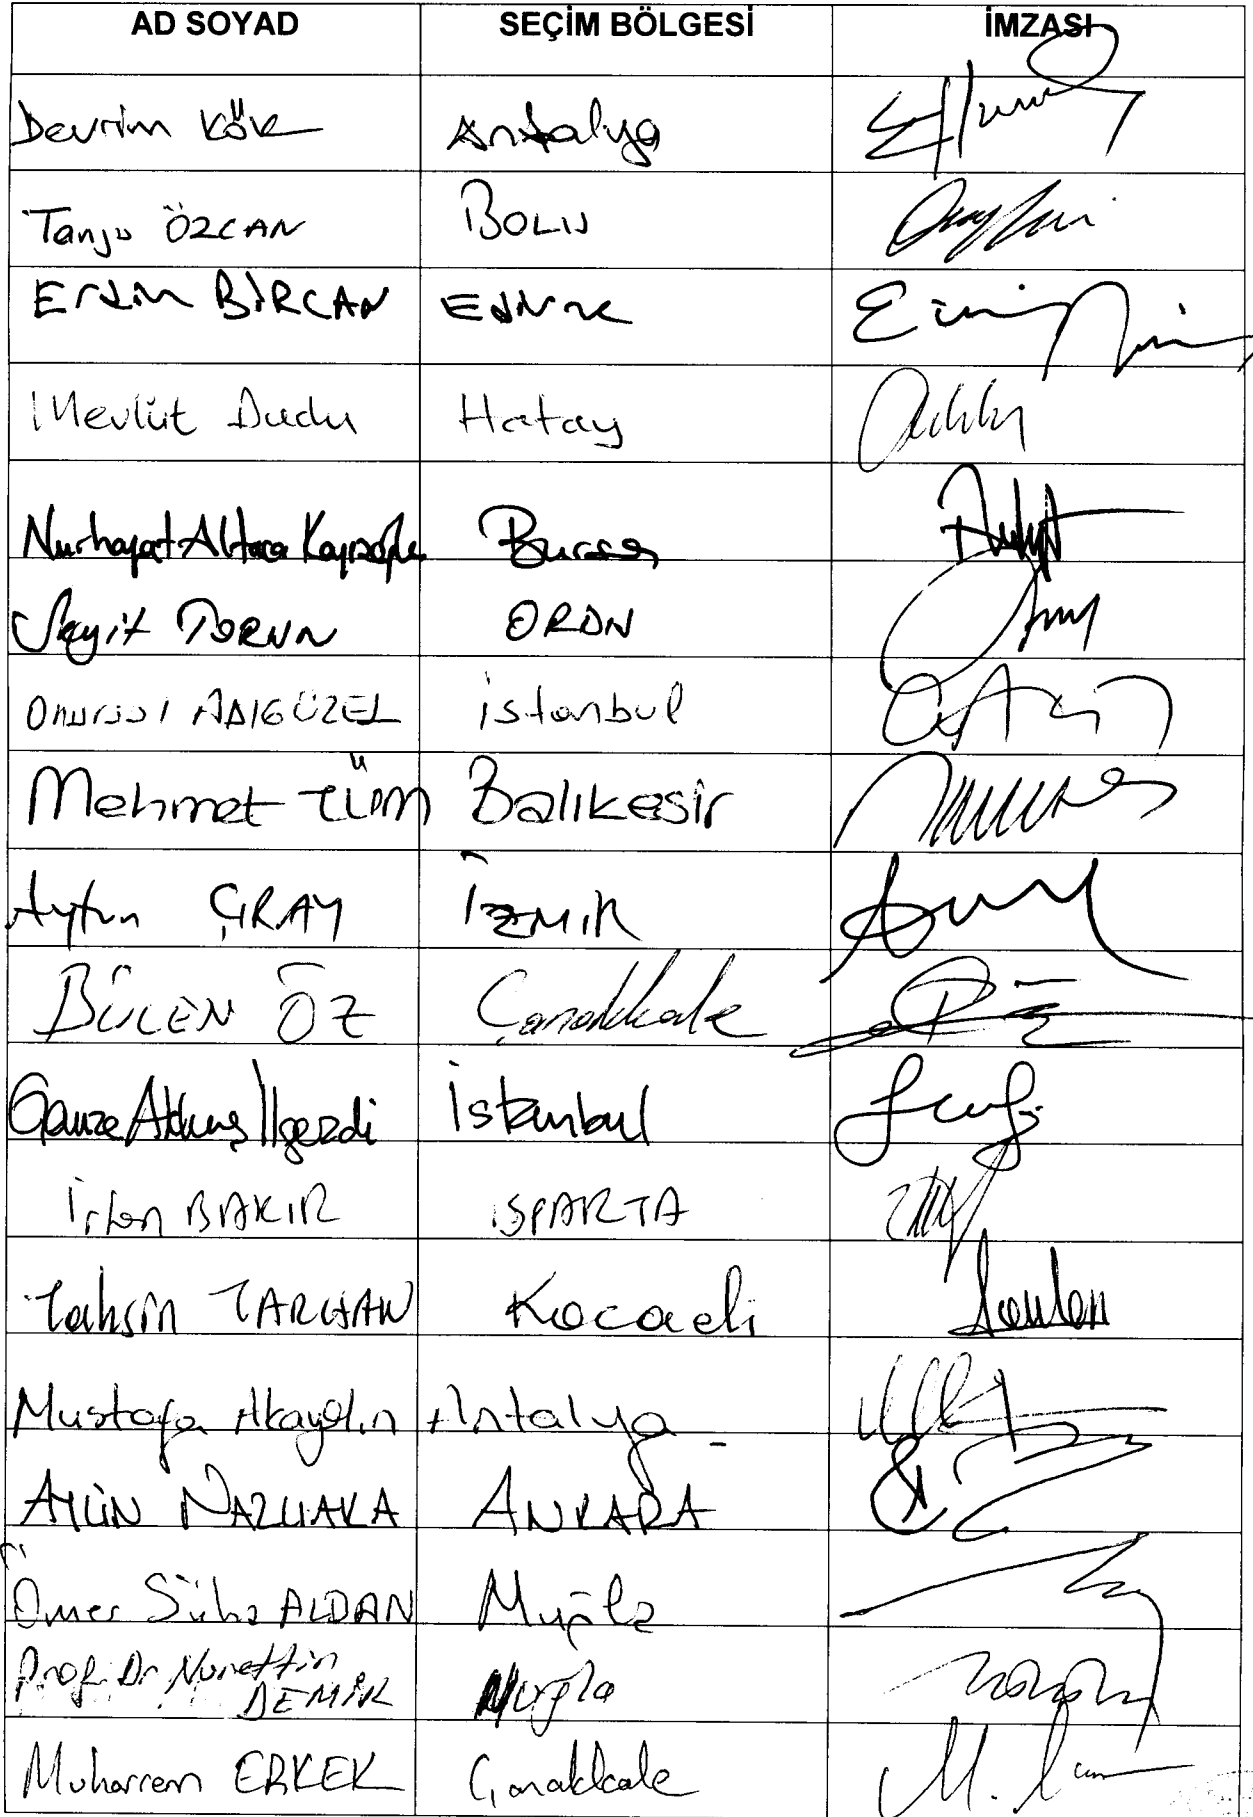 AD SOYAD SEÇİM BÖLGESİ İMZASI
Devrim KÖK Antalya
Tanju ÖZCAN BOLU
Erdin BİRCAN EDİRNE
Mevlüt Dudu Hatay
Nurhayat Altaca Kayışoğlu Bursa
Seyit TORUN ORDU
Onursal ADIGÜZEL İstanbul
Mehmet TÜM Balıkesir
Aytun ÇIRAY İZMİR
BÜLEN ÖZ Çanakkale
Gamze Akkuş İlgezdi İstanbul
İrfan BAKIR ISPARTA
Tahsin TARHAN Kocaeli
Mustafa Akaydın Antalya
AYLİN NAZLIAKA ANKARA
Ömer Süha ALDAN Muğla
Prof. Dr Nurettin
DEMİR Muğla
Muharrem ERKEK Çanakkale